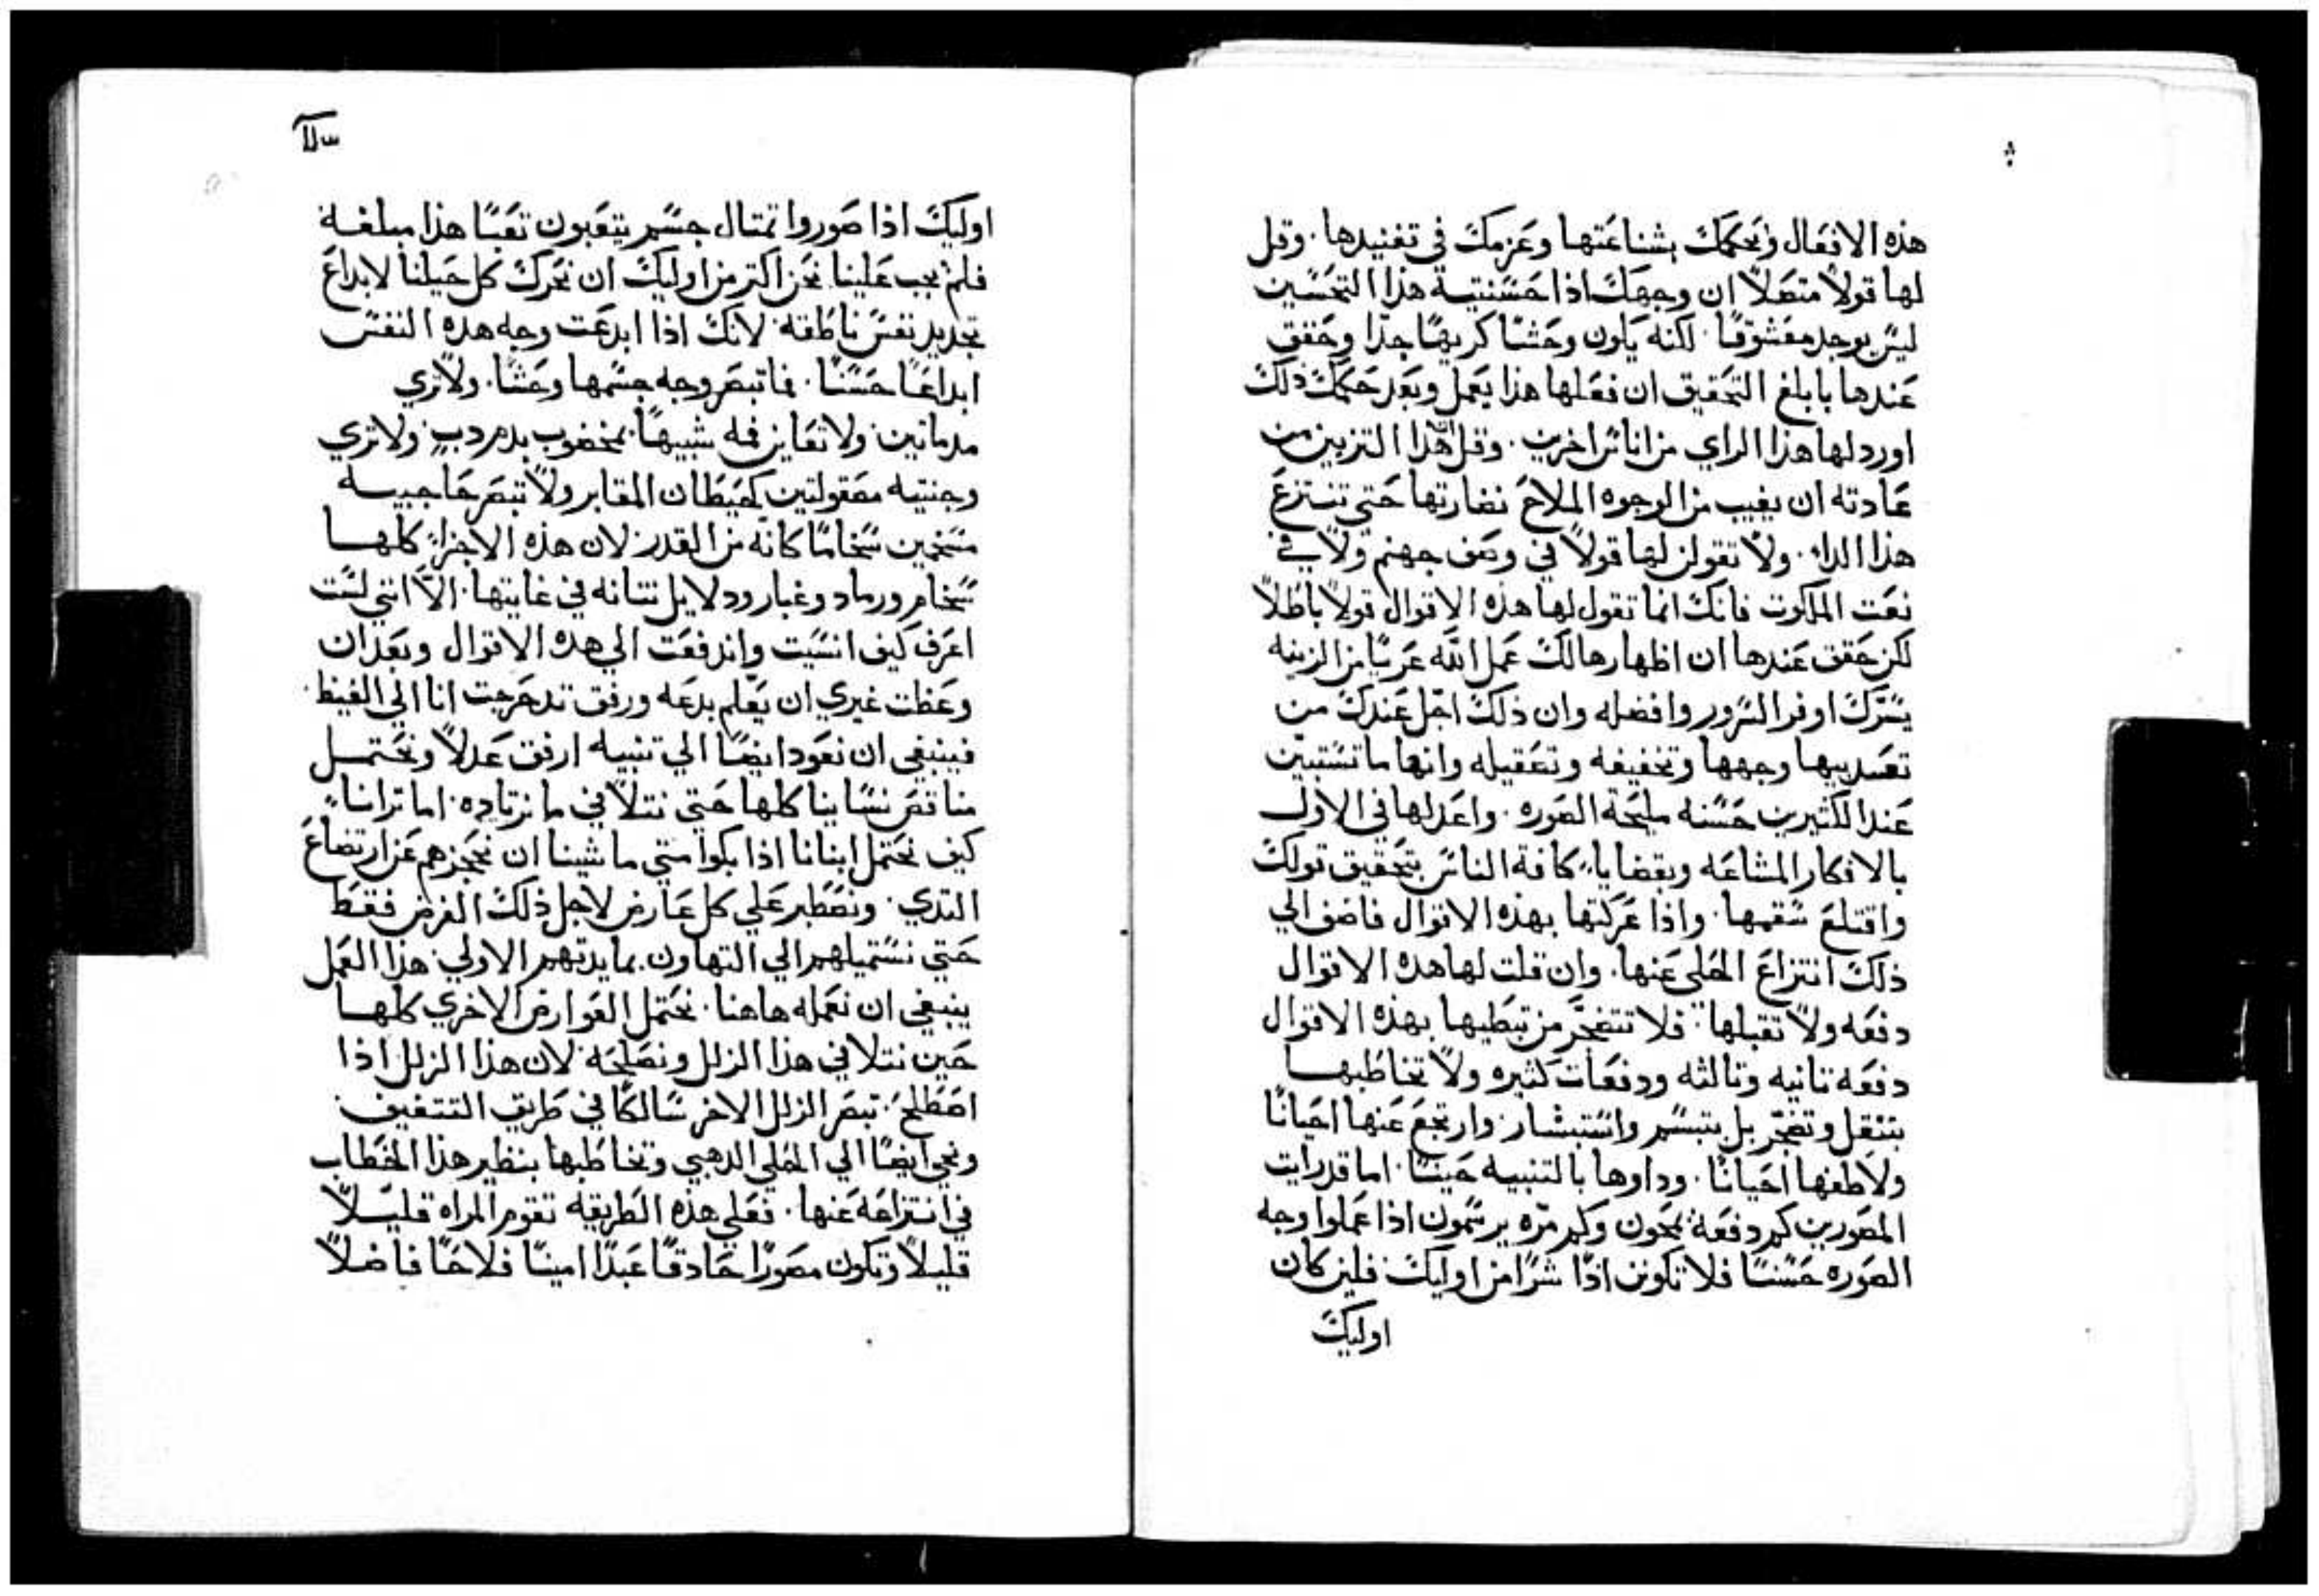 هذه الافعال وتحكمك بشناعتها وعزمك في تفنيدها. وقل
لها قولاً متصلاً ان وجهك اذا حسنتيه هذا التحسين
ليس يوجد معشوقًا. لكنه يكون وحشًا كريهًا جدًا وحقق
عندها بابلغ التحقيق ان فعلها هذا يعمل وبعد حكمك ذلك
اورد لها هذا الراي من اناس اخرين. وقل هذا التزيين من
عادته ان يغيب من الوجوه الملاح نضارتها حتي تنتزع
هذا الدا. ولا تقولن لها قولاً في وصف جهنم ولا في
نعت الملكوت فانك انما تقول لها هذه الاقوال قولاً باطلاً
لكن حقق عندها ان اظهارها لك عمل الله عريًا من الزينه
يسرك اوفر السرور وافضله وان ذلك اجل عندك من
وجهها وتخفيفه وتصقيله وانها ما تستبين
عند الكثيرين حسنه مليحة الصوره. واعدلها في الاول
بالافكار المشاعه وبقضايا كافة الناس بتحقيق قولك
واقتلع سقمها. واذا عركتها بهذه الاقوال فاضف الي
ذلك انتزاع الحلي عنها. وان قلت لها هذه الاقوال
دفعه ولا تقبلها. فلا تتضجر من تبطيها بهذه الاقوال
دفعه تانيه وتالثه ودفعات كثيره ولا تخاطبها
بتثقل وتضجر بل بتبسم واستبشار. وارتجع عنها احيانًا
ولاطفها احيانًا. وداوها بالتنبيه حينًا. اما قد رايت
المصورين كم دفعه يمحون وكم مره يرسمون اذا عملوا وجه
الصوره حسنًا فلا تكونن اذًا شرًا من اوليك فلين كان
اوليك
اوليك اذا صوروا تمتال جسم يتعبون تعبًا هذا مبلغه
فلم يجب علينا نحن اكتر من اوليك ان نحرك كل حيلنا لابداع
تجديد نفس ناطقه. لانك اذا ابدعت وجه هذه النفس
ابداعًا حسنًا. فما تبصر وجه جسمها وحشًا. ولا تري
ولا تعاين فمه شبيهًا بمخضوب بدم دب ولا تري
وجنتيه مصقولتين كحيطان المقابر ولا تبصر حاجبيه
مسخمين سخامًا كانه من القدر لان هذه الاجزا كلها
سخام ورماد وغبار ودلايل نتانه في غايتها. الا انني لست
اعرف كيف انسيت واندفعت الي هده الاقوال وبعد ان
وعظت غيري ان يعلم بدعه ورفق تدحرجت انا الي الغيظ.
فينبغي ان نعود ايضًا الي تنبيه ارفق عدلاً ونحتمل
مناقص نساينا كلها حتي نتلافي ما نرتاده. اما ترانا
كيف نحتمل ابنانا اذا بكوا متي ما شينا ان نحجزهم عن ارتضاع
التدي. ونصطبر علي كل عارض لاجل ذلك الغرض فقط
حتي نستميلهم الي التهاون بمايدتهم الاولي. هذا العمل
ينبغي ان نعمله هاهنا. نحتمل العوارض الاخري كلها
حين نتلافي هذا الزلل ونصلحه. لان هذا الزلل اذا
اصطلح. تبصر الزلل الاخر سالكًا في طريق التتقيف
وتجي ايضًا الي الحلي الدهبي وتخاطبها بنظير هذا الخطاب
في انتزاعه عنها. فعلي هذه الطريقه تقوم المراه قليلاً
قليلاً وتكون مصورًا حادقًا عبدًا امينًا فلاحًا فاضلاً